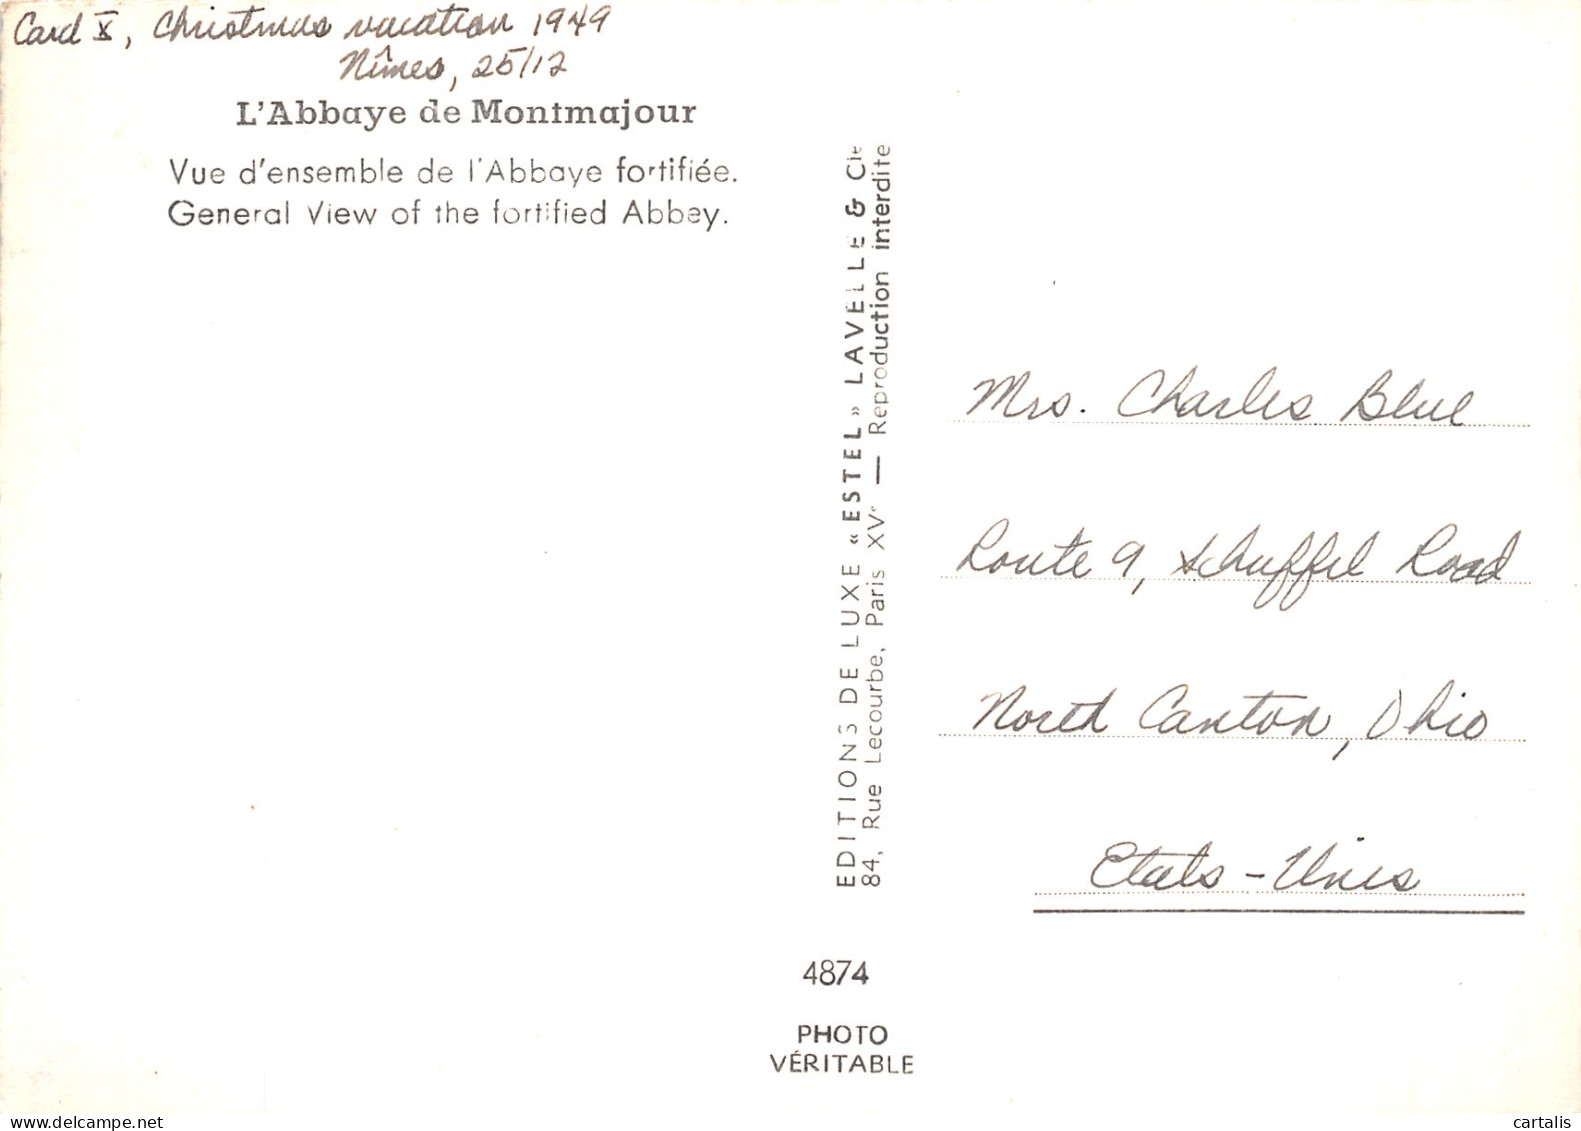 Card X, Christmas vacation 1949
Nîmes, 25/12
L'Abbaye de Montmajour
Vue d'ensemble de l'Abbaye fortifiée.
General View of the fortified Abbey.
EDITIONS DE LUXE « ESTEL » LAVELLE & Cie
84, Rue Lecourbe, Paris XVe — Reproduction interdite
Mrs. Charles Blue
Route 9, Schuffel Road
North Canton, Ohio
Etats-Unis
4874
PHOTO
VÉRITABLE
delcampe.net
cartalis